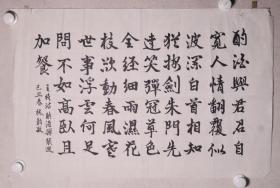 酌酒與君君自
寬人情翻覆似
波瀾白首相知
猶按劍朱門先
達笑彈冠草色
全經細雨濕花
枝欲動春風寒
世事浮雲何足
問不如高臥且
加餐
王維詩酌酒與裴迪
己巳春